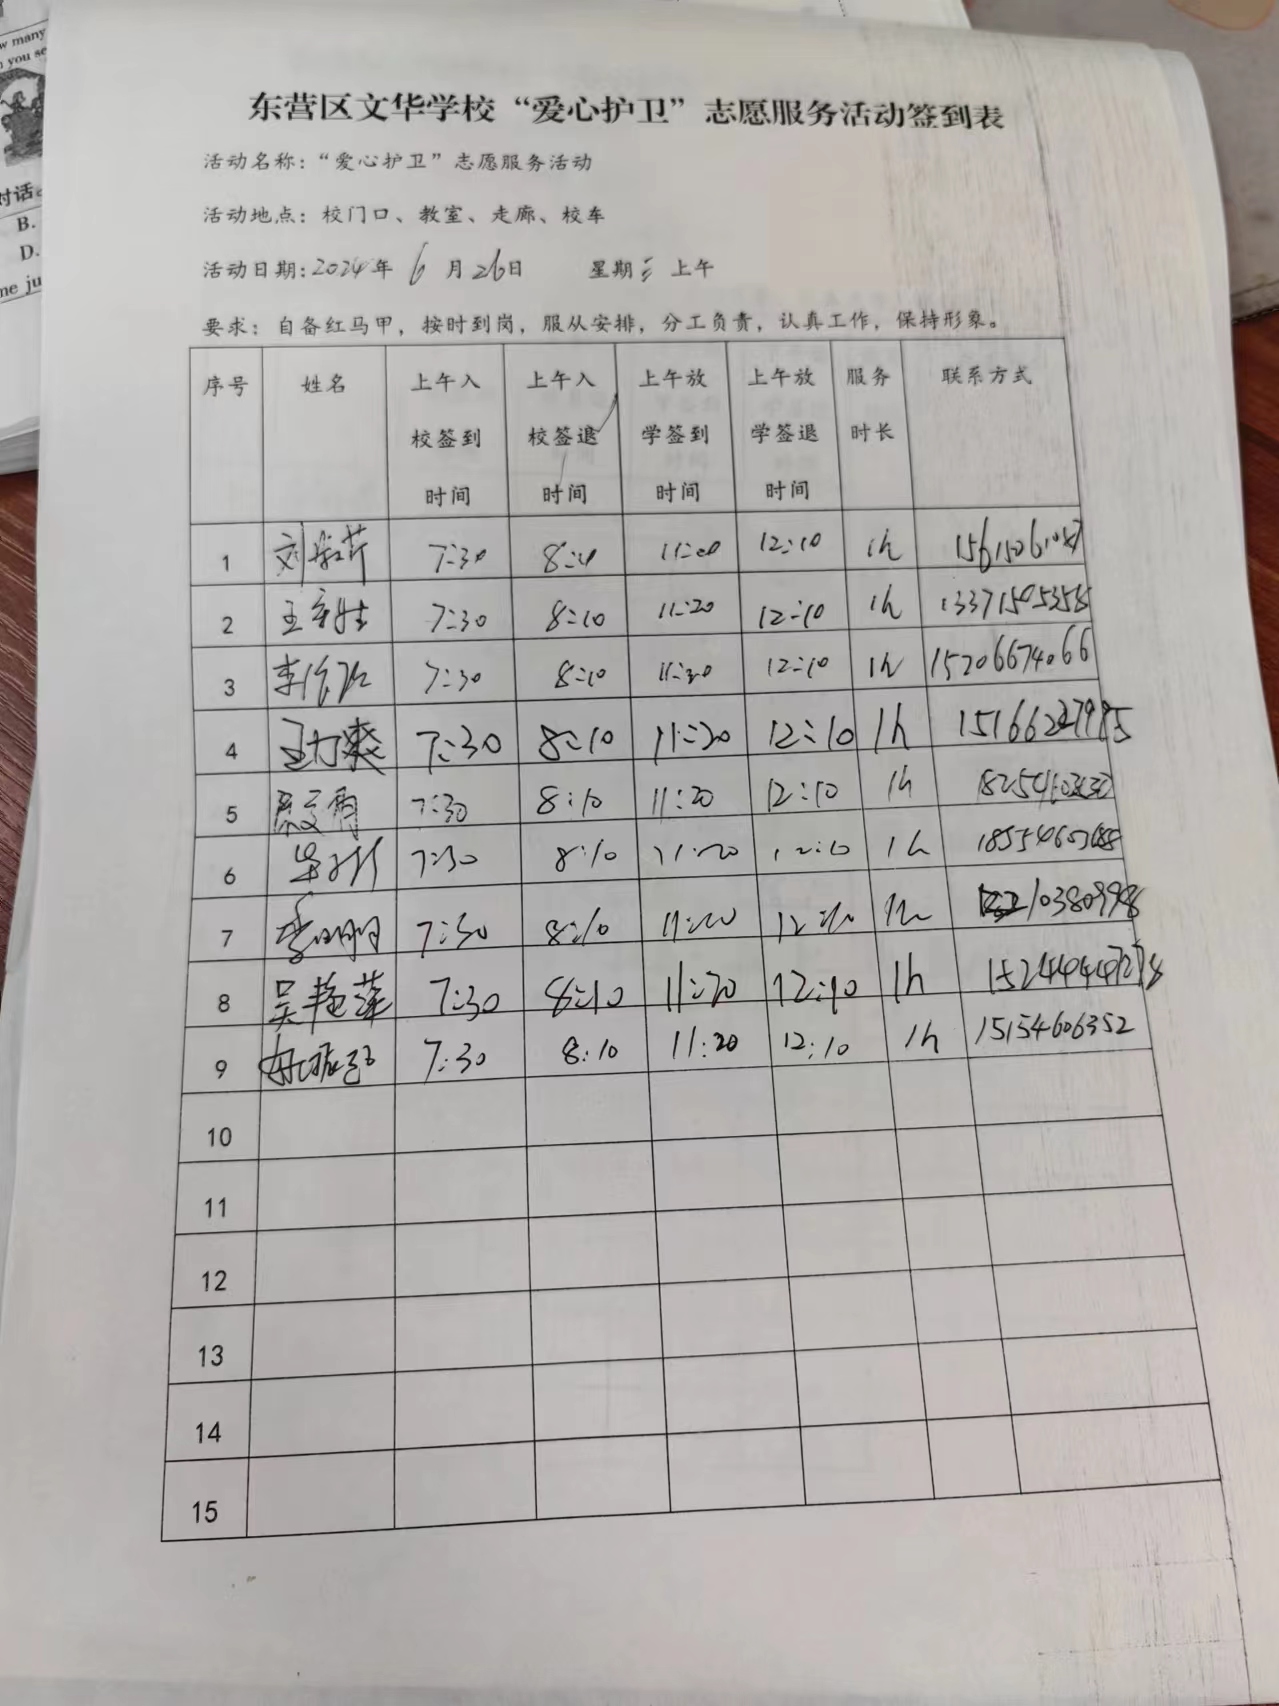 w many
you se
对话
B.
D.
me ju
东营区文华学校“爱心护卫”志愿服务活动签到表
活动名称：“爱心护卫”志愿服务活动
活动地点：校门口、教室、走廊、校车
活动日期：2024年 6 月 26日 星期三 上午
要求：自备红马甲，按时到岗，服从安排，分工负责，认真工作，保持形象。
序号 姓名 上午入校签到时间 上午入校签退时间 上午放学签到时间 上午放学签退时间 服务时长 联系方式
1 7:30 12:10 1h
2 7:30 8:10 11:20 12:10 1h
3 7:30 8:10 11:20 12:10 1h 15206674066
4 7:30 8:10 11:20 12:10 1h
5 7:30 8:10 11:20 12:10 1h
6 7:30 8:10 11:20 12:10 1h
7 李明明 7:30 8:10 11:20 12:10 1h
8 吴艳萍 7:30 8:10 11:20 12:10 1h
9 7:30 8:10 11:20 12:10 1h 15154606352
10
11
12
13
14
15